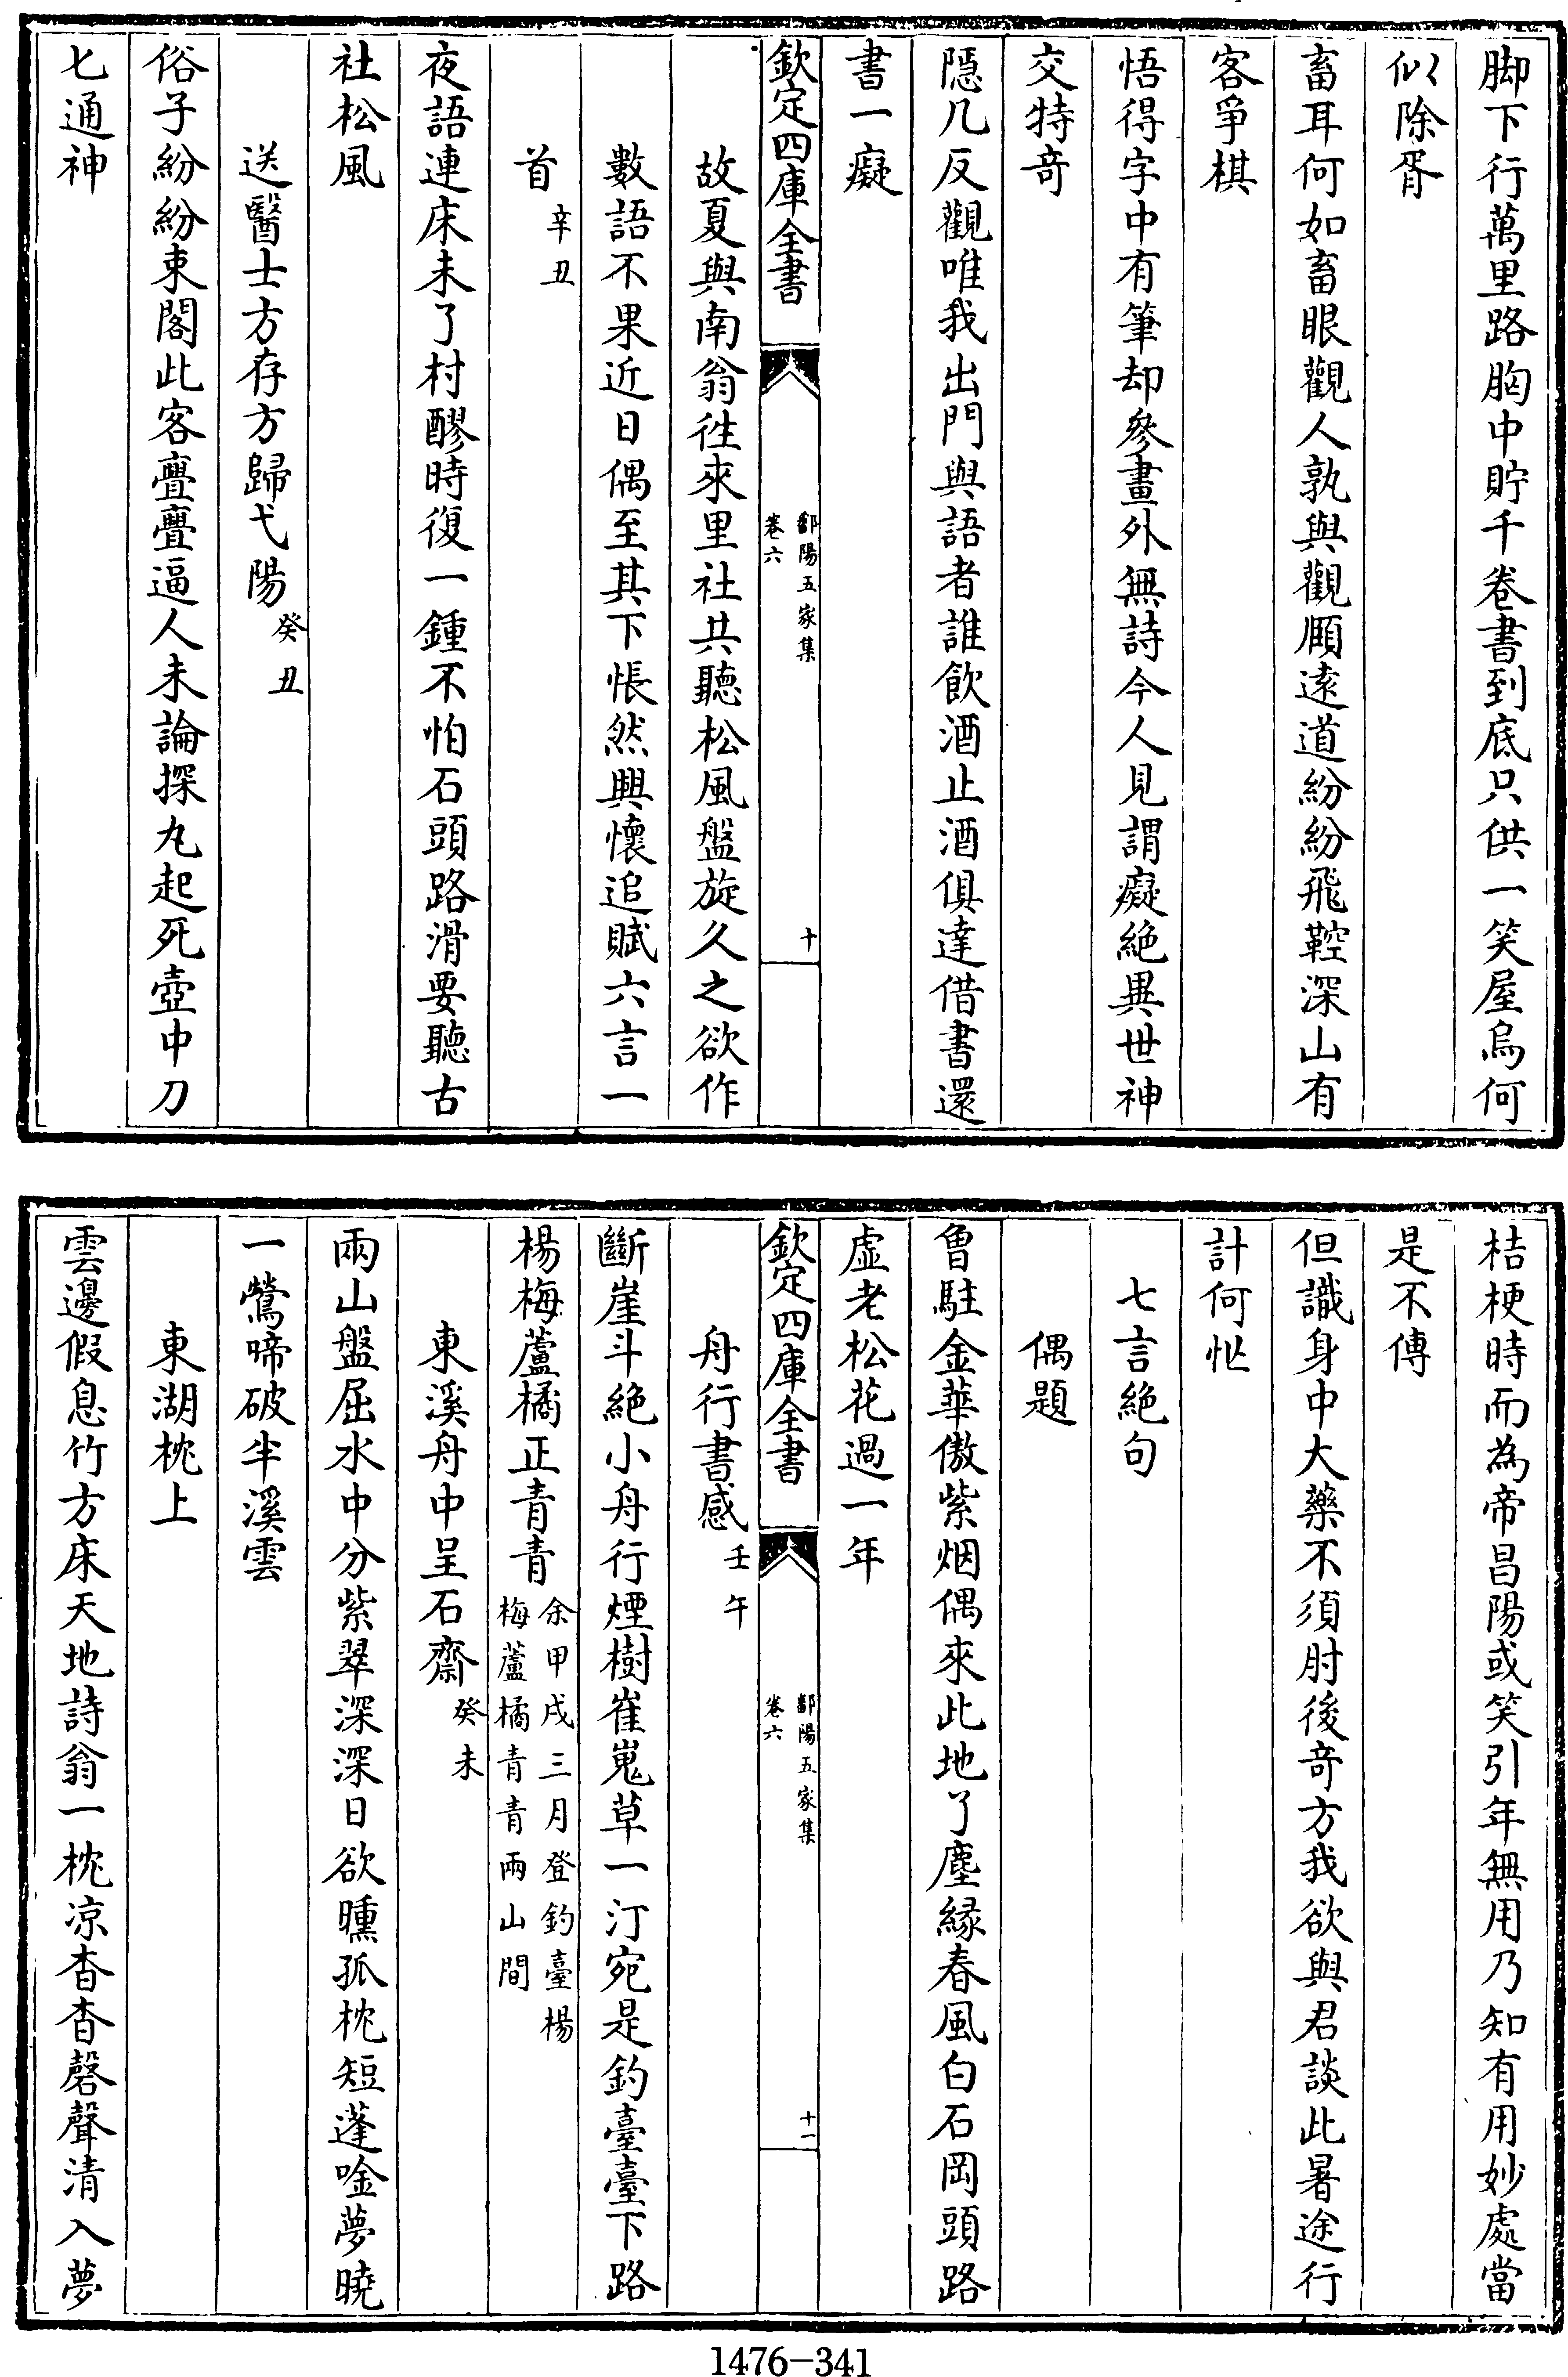 脚下行萬里路胸中貯千卷書到底只供一笑屋烏何
似除胥
畜耳何如畜眼觀人孰與觀頤遠道紛紛飛鞚深山有
客爭棋
悟得字中有筆却參畫外無詩今人見謂癡絕異世神
交特奇
隱几反觀唯我出門與語者誰飲酒止酒俱達借書還
書一癡
欽定四庫全書
鄱陽五家集
卷六
十
故夏與南翁徃來里社共聽松風盤旋久之欲作
數語不果近日偶至其下悵然興懷追賦六言一
首辛丑
夜語連床未了村醪時復一鍾不怕石頭路滑要聽古
社松風
送醫士方存方歸弋陽癸丑
俗子紛紛束閣此客亹亹逼人未論探丸起死壺中刀
匕通神
桔梗時而為帝昌陽或笑引年無用乃知有用妙處當
是不傳
但識身中大藥不須肘後奇方我欲與君談此暑途行
計何忙
七言絕句
偶題
曾駐金華傲紫烟偶來此地了塵緣春風白石岡頭路
虛老松花過一年
欽定四庫全書
鄱陽五家集
卷六
十一
舟行書感壬午
斷崖斗絕小舟行煙樹崔嵬草一汀宛是釣臺臺下路
楊梅蘆橘正青青余甲戌三月登釣臺楊
梅蘆橘青青兩山間
東溪舟中呈石齋癸未
兩山盤屈水中分紫翠深深日欲曛孤枕短蓬唫夢曉
一鶯啼破半溪雲
東湖枕上
雲邊假息竹方床天地詩翁一枕凉杳杳磬聲清入夢
1476-341